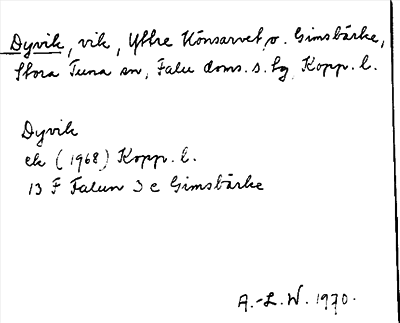 Dyvik, vik, Yttre Könsarvet o. Gimsbärke,
Stora Tuna sn, Falu doms. s. lg, Kopp. l.
Dyvik
ek (1968) Kopp. l.
13 F Falun 3 c Gimsbärke
A.-L. W. 1970.